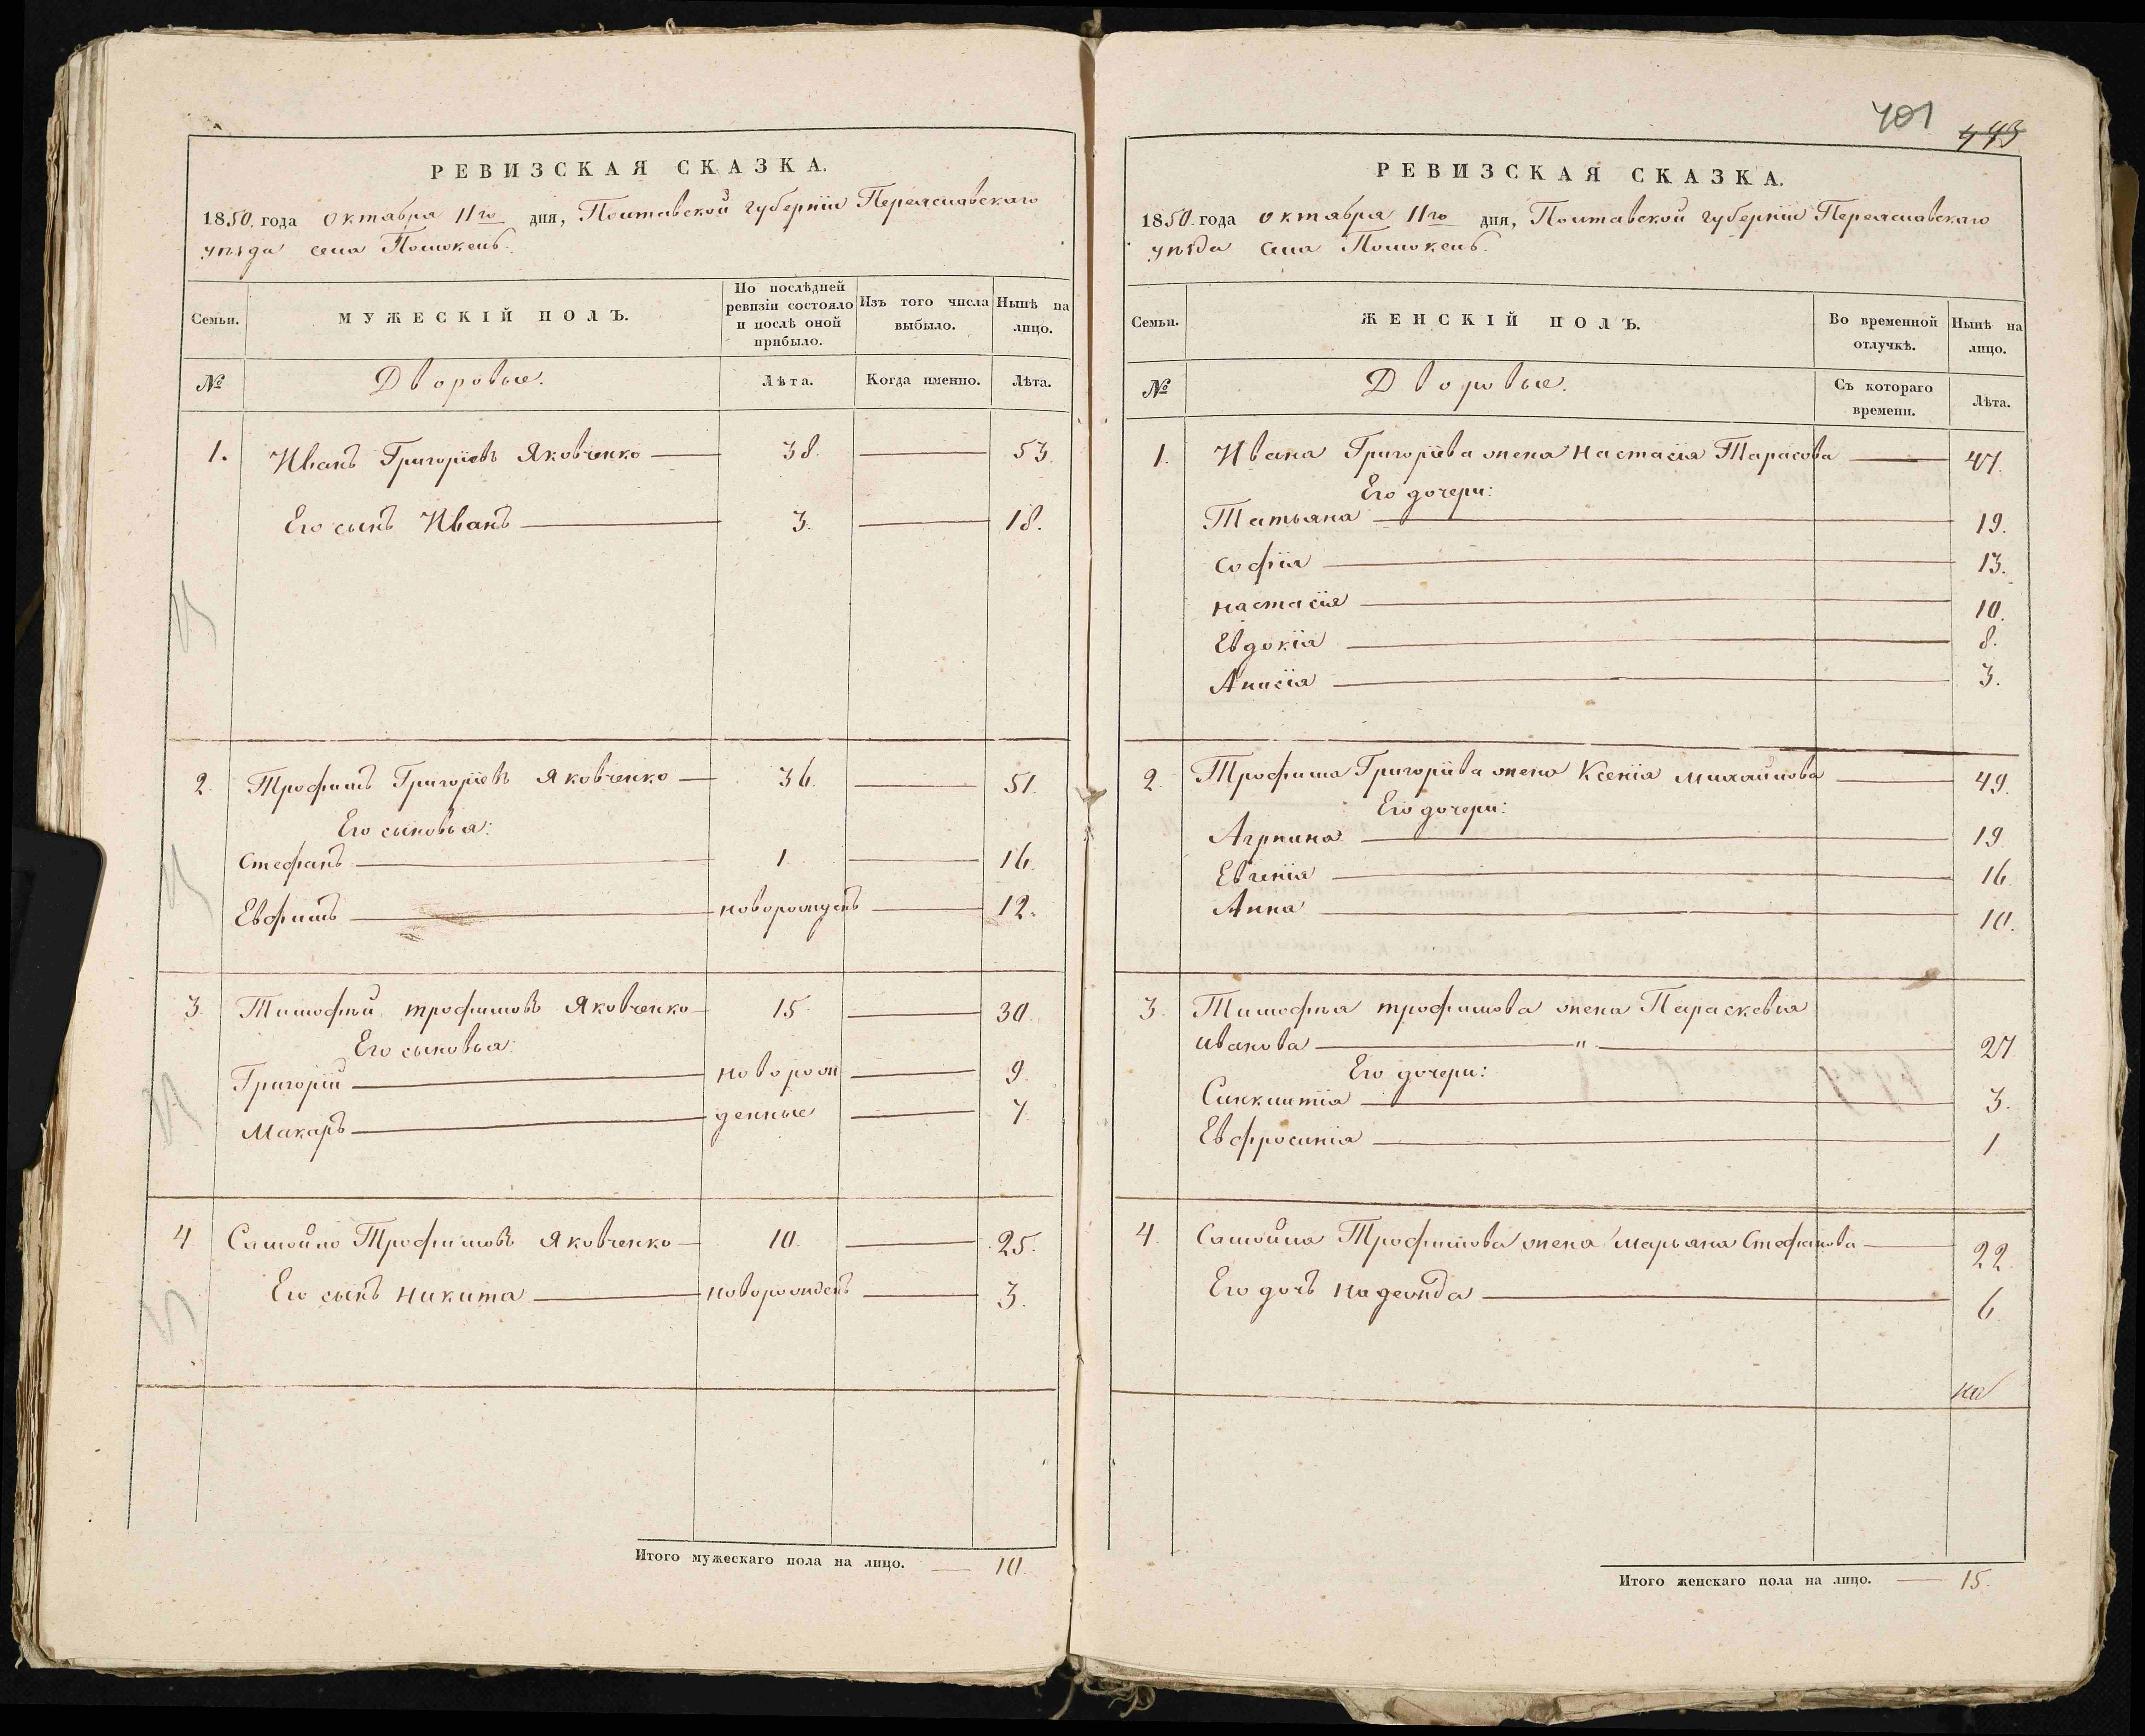 РЕВИЗСКАЯ СКАЗКА.
1850. года октября 11го дня, Полтавской губерніи Переяславскаго
уѣзда села Помокель.
Семьи.
МУЖЕСКІЙ ПОЛЪ.
По послѣдней ревизіи состояло и послѣ оной прибыло.
Изъ того числа выбыло.
Нынѣ на лицо.
№
Дворовые.
Лѣта.
Когда именно.
Лѣта.
1. Иванъ Григоріевъ Яковченко — 38. — 53.
Его сынъ Иванъ — 3. — 18.
2. Трофимъ Григоріевъ Яковченко — 36. — 51.
Его сыновья:
Стефанъ — 1. — 16.
Евфимъ — новорожденъ — 12.
3. Тимофѣй трофимовъ Яковченко — 15 — 30.
Его сыновья:
Григорій — новорож — 9.
Макаръ — денные — 7.
4 Самойло Трофимовъ Яковченко — 10. — 25.
Его сынъ Никита — новорожденъ — 3.
Итого мужескаго пола на лицо. — 10.
701
493
РЕВИЗСКАЯ СКАЗКА.
1850. года октября 11го дня, Полтавской губерніи Переяславскаго
уѣзда села Помокель.
Семьи.
ЖЕНСКІЙ ПОЛЪ.
Во временной отлучкѣ.
Нынѣ на лицо.
№
Дворовые.
Съ котораго времени.
Лѣта.
1. Ивана Григоріева жена Настасія Тарасова — 47.
Его дочери:
Татьяна — 19.
Софія — 13.
Настасія — 10.
Евдокія — 8.
Анисія — 3.
2. Трофима Григоріева жена Ксенія Михайлова — 49.
Его дочери:
Агрпина — 19.
Евгенія — 16.
Анна — 10.
3. Тимофѣя трофимова жена Параскевія
Иванова — " — 27
Его дочери:
Синклитія — 3.
Евфросинія — 1
4. Самойла Трофимова жена Марьяна Стефанова — 22.
Его дочь Надежда — 6
Итого женскаго пола на лицо. — 15.